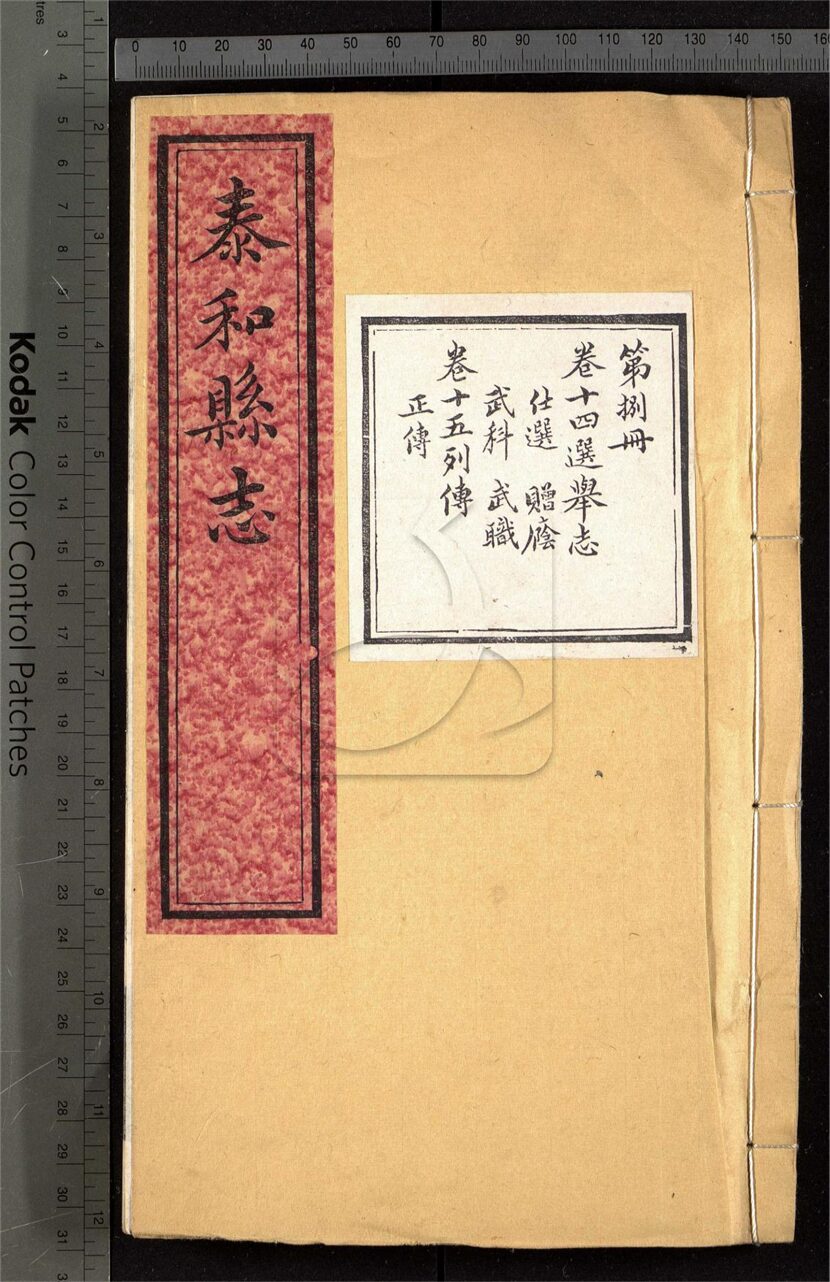 泰和縣志
第捌冊
卷十四選舉志
仕選 贈廕
武科 武職
卷十五列傳
正傳
0 10 20 30 40 50 60 70 80 90 100 110 120 130 140 150 160
tres
3 4 5 6 7 8 9 10 11 12 13 14 15 16 17 18 19 20 21 22 23 24 25 26 27 28 29 30 31
1 2 3 4 5 6 7 8 9 10 11 12
Kodak Color Control Patches